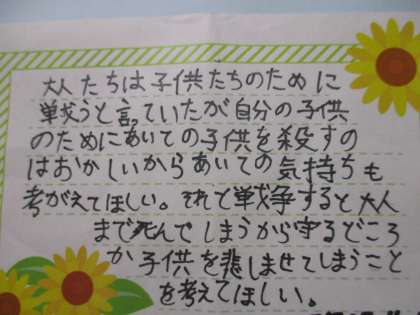 大人たちは子供たちのために
戦うと言っていたが自分の子供
のためにあいての子供を殺すの
はおかしいからあいての気持ちも
考がえてほしい。それと戦争すると大人
まで死んでしまうから守るどころ
か子供を悲しませてしまうこと
を考えてほしい。